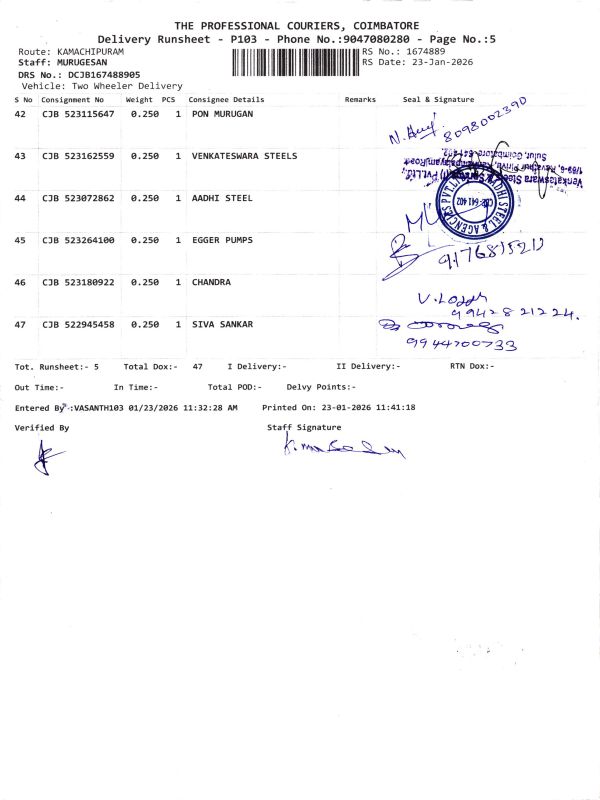 THE PROFESSIONAL COURIERS, COIMBATORE
Delivery Runsheet - P103 - Phone No.:9047080280 - Page No.:5
Route: KAMACHIPURAM RS No.: 1674889
Staff: MURUGESAN RS Date: 23-Jan-2026
DRS No.: DCJB167488905
Vehicle: Two Wheeler Delivery
S No Consignment No Weight PCS Consignee Details Remarks Seal & Signature
42 CJB 523115647 0.250 1 PON MURUGAN
8098002390
43 CJB 523162559 0.250 1 VENKATESWARA STEELS
Venkataswara
Sulur, Coimbatore
44 CJB 523072862 0.250 1 AADHI STEEL
AADHI STEEL & AGENCIES PVT LTD
CBE-641 402
45 CJB 523264100 0.250 1 EGGER PUMPS
46 CJB 523180922 0.250 1 CHANDRA
9942821224.
47 CJB 522945458 0.250 1 SIVA SANKAR
9944700733
Tot. Runsheet:- 5 Total Dox:- 47 I Delivery:- II Delivery:- RTN Dox:-
Out Time:- In Time:- Total POD:- Delvy Points:-
Entered By :VASANTH103 01/23/2026 11:32:28 AM Printed On: 23-01-2026 11:41:18
Verified By Staff Signature